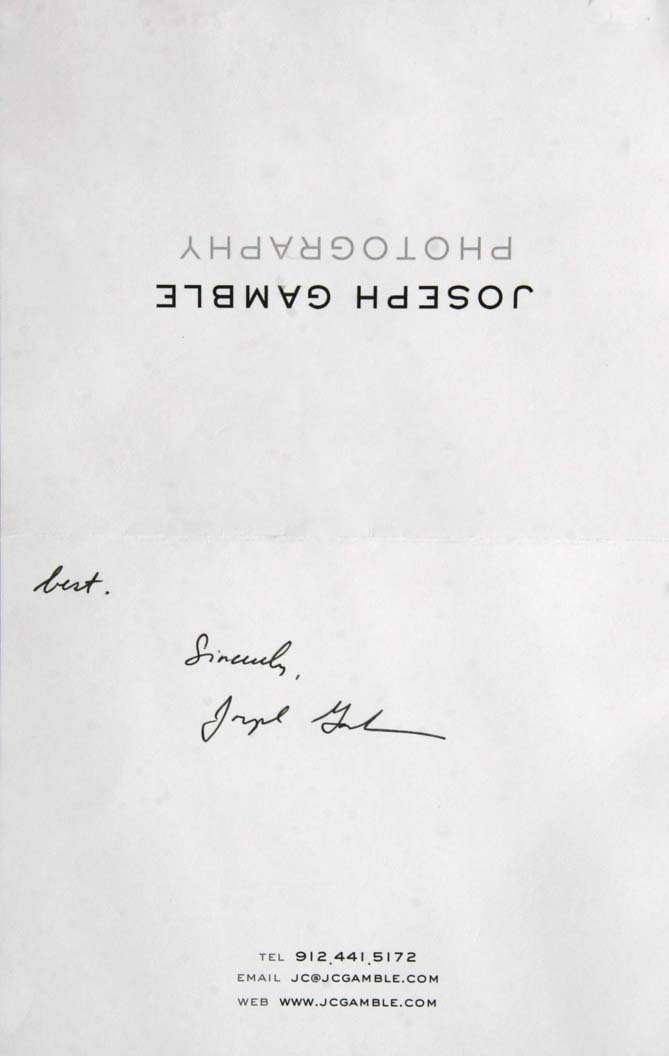 JOSEPH GAMBLE
PHOTOGRAPHY
best.
Sincerely,
Joseph Gamble
TEL 912.441.5172
EMAIL JC@JCGAMBLE.COM
WEB WWW.JCGAMBLE.COM